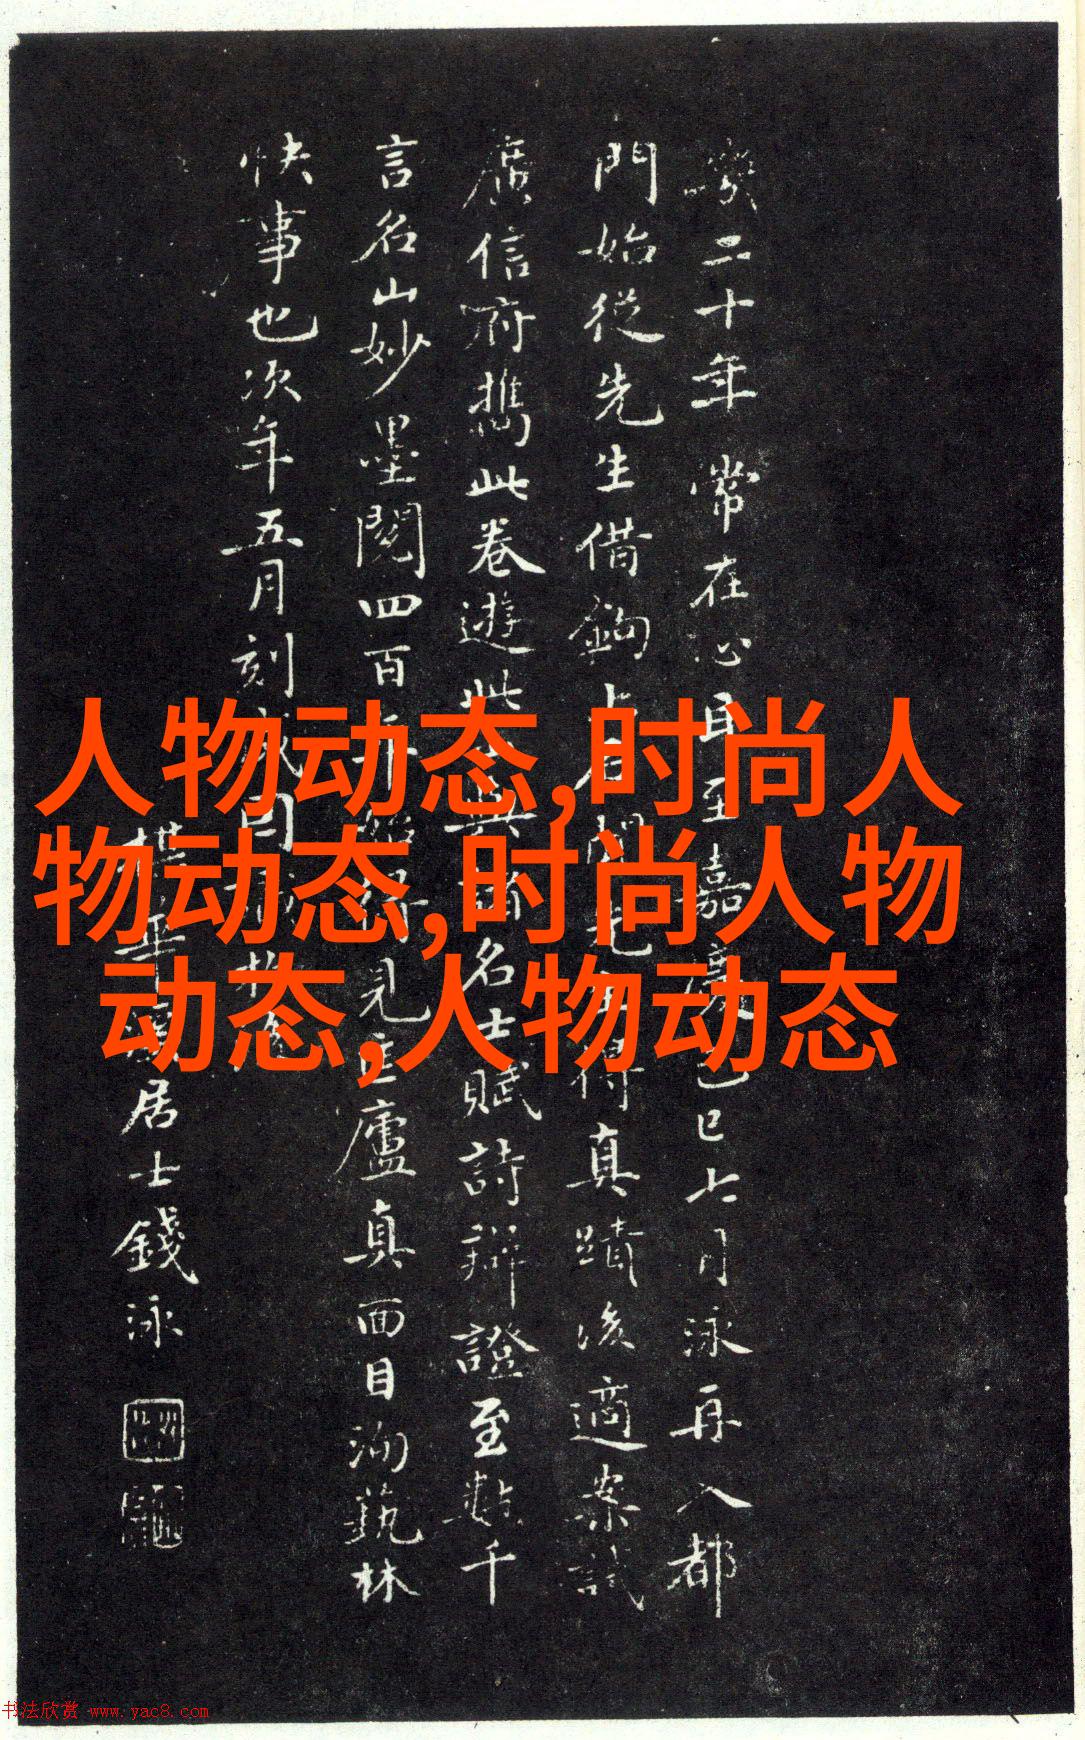 幾二十年常在心目至嘉慶己巳七月泳再入都
門始從先生借鈎上石得真蹟後適案試
廣信府攜此卷遊此名士賦詩辯證至數千
言名山妙墨閱四百年見匡廬真面目洵藝林
快事也次年五月刻成因
華溪居士錢泳
人物动态,时尚人
物动态,时尚人物
动态,人物动态
书法欣赏 www.yac8.com